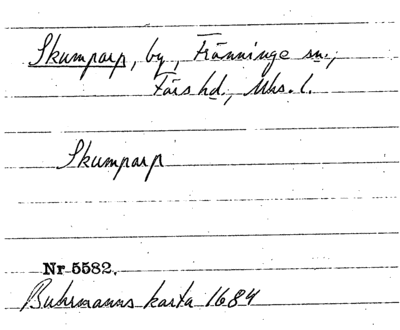 Skumparp, by, Fränninge sn.,
Färs hd., Mhs. l.
Skumparp
Nr 5582.
Buhrmanns karta 1684